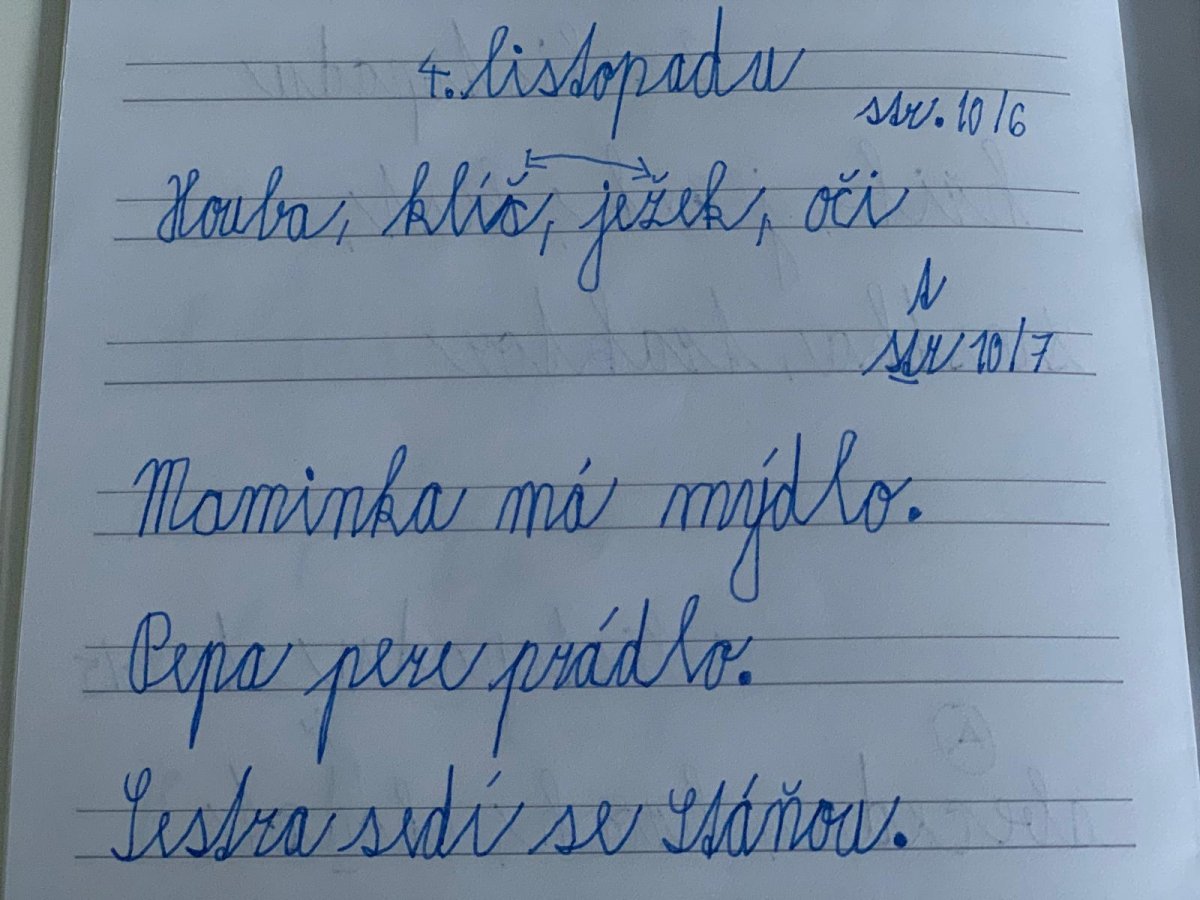 4. listopadu
str. 10/6
Houba, klíč, ježek, oči
s
str 10/7
Maminka má mýdlo.
Pepa pere prádlo.
Sestra sedí se Stáňou.